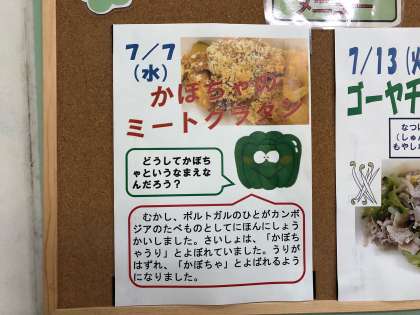 メニュー
7／7
（水）
かぼちゃの
ミートグラタン
どうしてかぼち
ゃというなまえな
んだろう？
むかし、ポルトガルのひとがカンボ
ジアのたべものとしてにほんにしょう
かいしました。さいしょは、「かぼち
ゃうり」とよばれていました。うりが
はずれ、「かぼちゃ」とよばれるよう
になりました。
7／13（火
ゴーヤチ
なつ
（しゅん
もやし